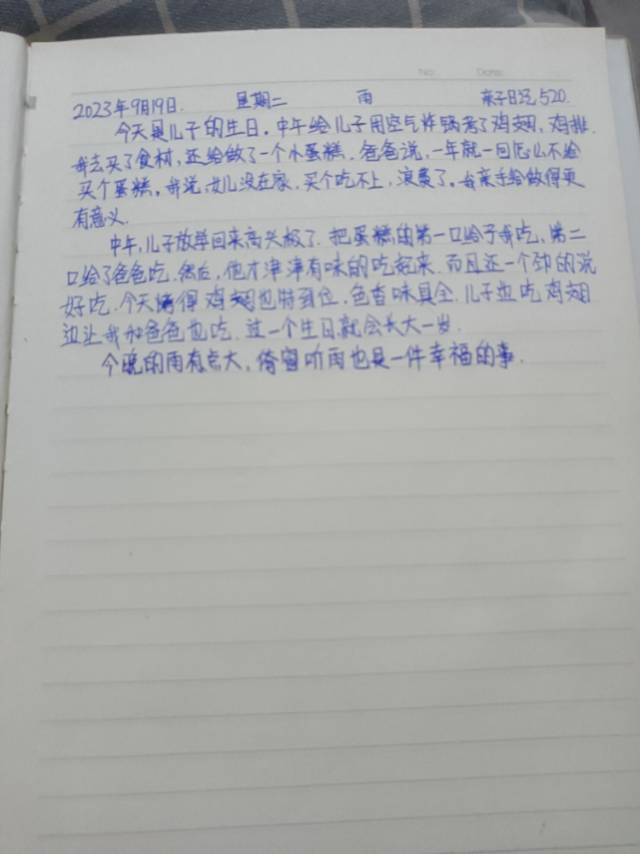 No. Date.
2023年9月19日. 星期二 雨 亲子日记520.
今天是儿子的生日.中午给儿子用空气炸锅烤了鸡翅,鸡排.
我去买了食材,还给做了一个小蛋糕.爸爸说,一年就一回怎么不给
买个蛋糕。我说女儿没在家,买个吃不上,浪费了。我亲手给做得更
有意义.
中午,儿子放学回来高兴极了.把蛋糕的第一口给于我吃、第二
口给了爸爸吃.然后,他才津津有味的吃起来.而且还一个劲的说
好吃.今天烤得鸡翅也特到位,色香味具全.儿子边吃鸡翅
边让我和爸爸也吃.过一个生日就会长大一岁.
今晚的雨有点大,倚窗听雨也是一件幸福的事.